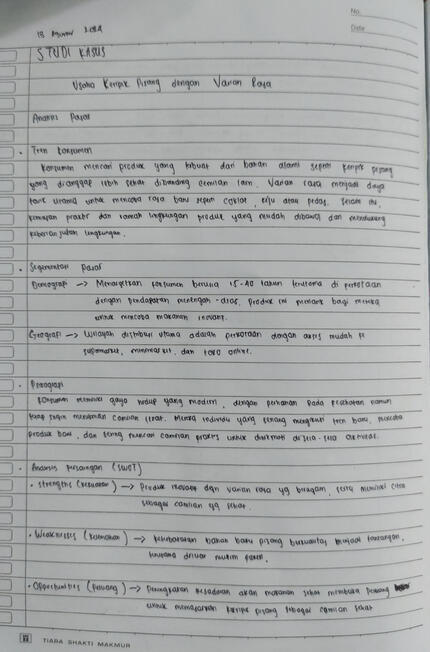 No.
Date
18 Agustus 2024
STUDI KASUS
Usaha Keripik Pisang dengan Varian Rasa
Analisis Pasar
• Tren Konsumen
Konsumen mencari produk yang terbuat dari bahan alami seperti keripik pisang
yang dianggap lebih sehat dibanding cemilan lain. Varian rasa menjadi daya
tarik utama untuk mencoba rasa baru seperti coklat, keju atau pedas. Selain itu,
kemasan praktis dan ramah lingkungan produk yang mudah dibawa dan mendukung
keberlanjutan lingkungan.
• Segmentasi Pasar
Demografi -> Menargetkan konsumen berusia 15-40 tahun terutama di perkotaan
dengan pendapatan menengah-atas, produk ini menarik bagi mereka
untuk mencoba makanan inovatif.
Geografi -> Wilayah distribusi utama adalah perkotaan dengan akses mudah ke
supermarket, minimarket, dan toko online.
• Psikografi
Konsumen memiliki gaya hidup yang modern, dengan perhatian pada kesehatan namun
tetap ingin menikmati camilan lezat. Mereka individu yang senang mengikuti tren baru, mencoba
produk baru, dan sering mencari camilan praktis untuk dinikmati di sela-sela aktivitas.
• Analisis Persaingan (SWOT)
• Strengths (Kekuatan) -> Produk inovatif dgn varian rasa yg beragam, serta memiliki citra
sebagai camilan yg sehat.
• Weaknesses (Kelemahan) -> Keterbatasan bahan baku pisang berkualitas menjadi tantangan,
terutama diluar musim panen.
• Opportunities (Peluang) -> Peningkatan kesadaran akan makanan sehat membuka peluang
untuk memasarkan keripik pisang sebagai camilan sehat
TIARA SHAKTI MAKMUR